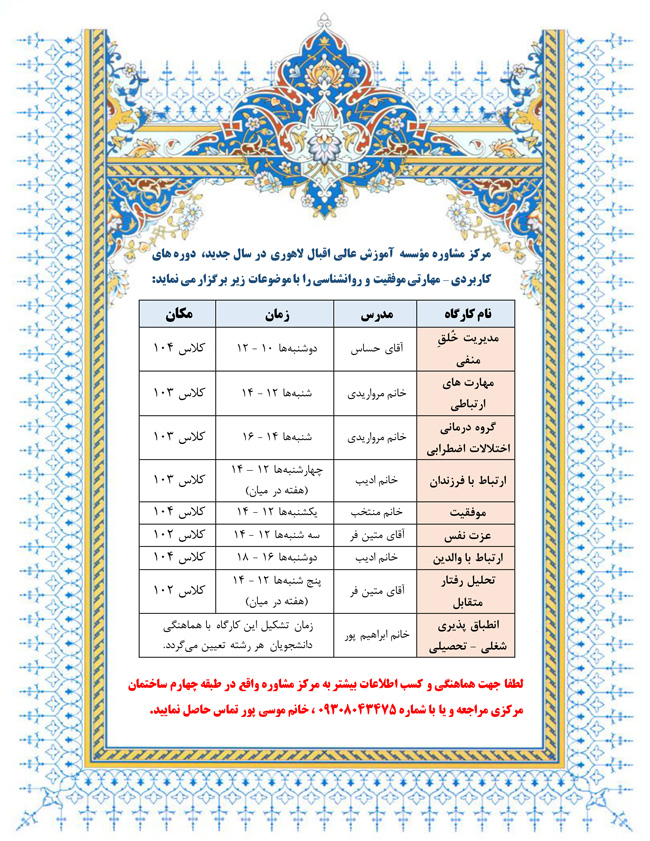 مرکز مشاوره مؤسسه آموزش عالی اقبال لاهوری در سال جدید، دوره های
کاربردی - مهارتی موفقیت و روانشناسی را با موضوعات زیر برگزار می نماید:
نام کارگاه مدرس زمان مکان
مدیریت خُلقِ
منفی آقای حساس دوشنبه‌ها ۱۰ - ۱۲ کلاس ۱۰۴
مهارت های
ارتباطی خانم مرواریدی شنبه‌ها ۱۲ - ۱۴ کلاس ۱۰۳
گروه درمانی
اختلالات اضطرابی خانم مرواریدی شنبه‌ها ۱۴ - ۱۶ کلاس ۱۰۳
ارتباط با فرزندان خانم ادیب چهارشنبه‌ها ۱۲ - ۱۴ کلاس ۱۰۳
(هفته در میان)
موفقیت خانم منتخب یکشنبه‌ها ۱۲ - ۱۴ کلاس ۱۰۴
عزت نفس آقای متین فر سه شنبه‌ها ۱۲ - ۱۴ کلاس ۱۰۲
ارتباط با والدین خانم ادیب دوشنبه‌ها ۱۶ - ۱۸ کلاس ۱۰۴
تحلیل رفتار
متقابل آقای متین فر پنج شنبه‌ها ۱۲ - ۱۴ کلاس ۱۰۲
(هفته در میان)
انطباق پذیری
شغلی - تحصیلی خانم ابراهیم پور زمان تشکیل این کارگاه با هماهنگی
دانشجویان هر رشته تعیین می‌گردد.
لطفا جهت هماهنگی و کسب اطلاعات بیشتر به مرکز مشاوره واقع در طبقه چهارم ساختمان
مرکزی مراجعه و یا با شماره ۰۹۳۰۸۰۴۳۴۷۵ ، خانم موسی پور تماس حاصل نمایید.